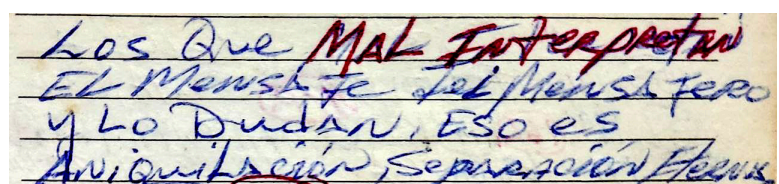 Los Que MAL InterpretAN
EL MensAJe del MensAJero
y Lo DudAN, Eso es
ANiquiLAción, SepARAción EternA